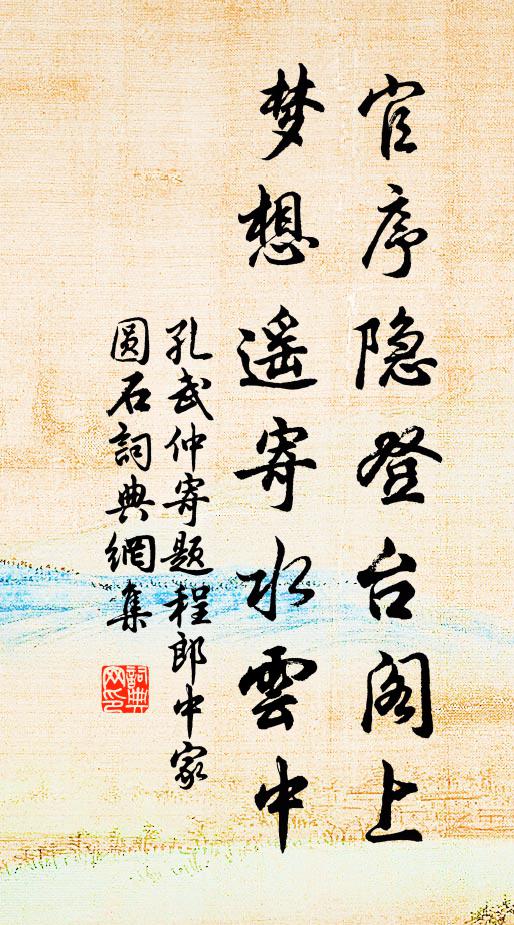 官序隐登台阁上
梦想遥寄水雲中
孔武仲寄题程郎中家
圆石詞典網集
詞典网印